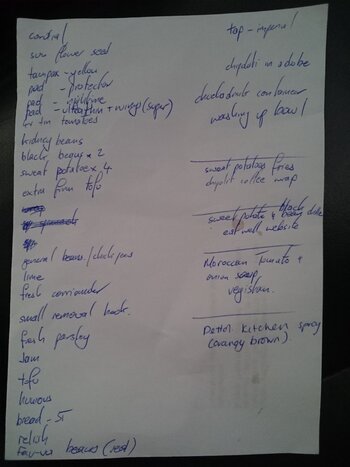 control
sun flower seed
tampax - yellow
pad - protector
pad - nightime
pad - ultrathin + wings (super)
tin tomatoes
kidney beans
black beans x 2
sweet potatoes x 4
extra firm tofu
general beans / chick peas
lime
fresh corriander
small removal
fresh parsley
Jam
tofu
humous
bread - 5
relish
beans (red)
tap - imperial
chipotli in adobe
container
washing up bowl
sweet potatoes fries
chipotli wrap
sweet potato + black
eat well website
Moroccan tomato +
onion soup
vegistan.
Dettol kitchen spray
(orangy brown).